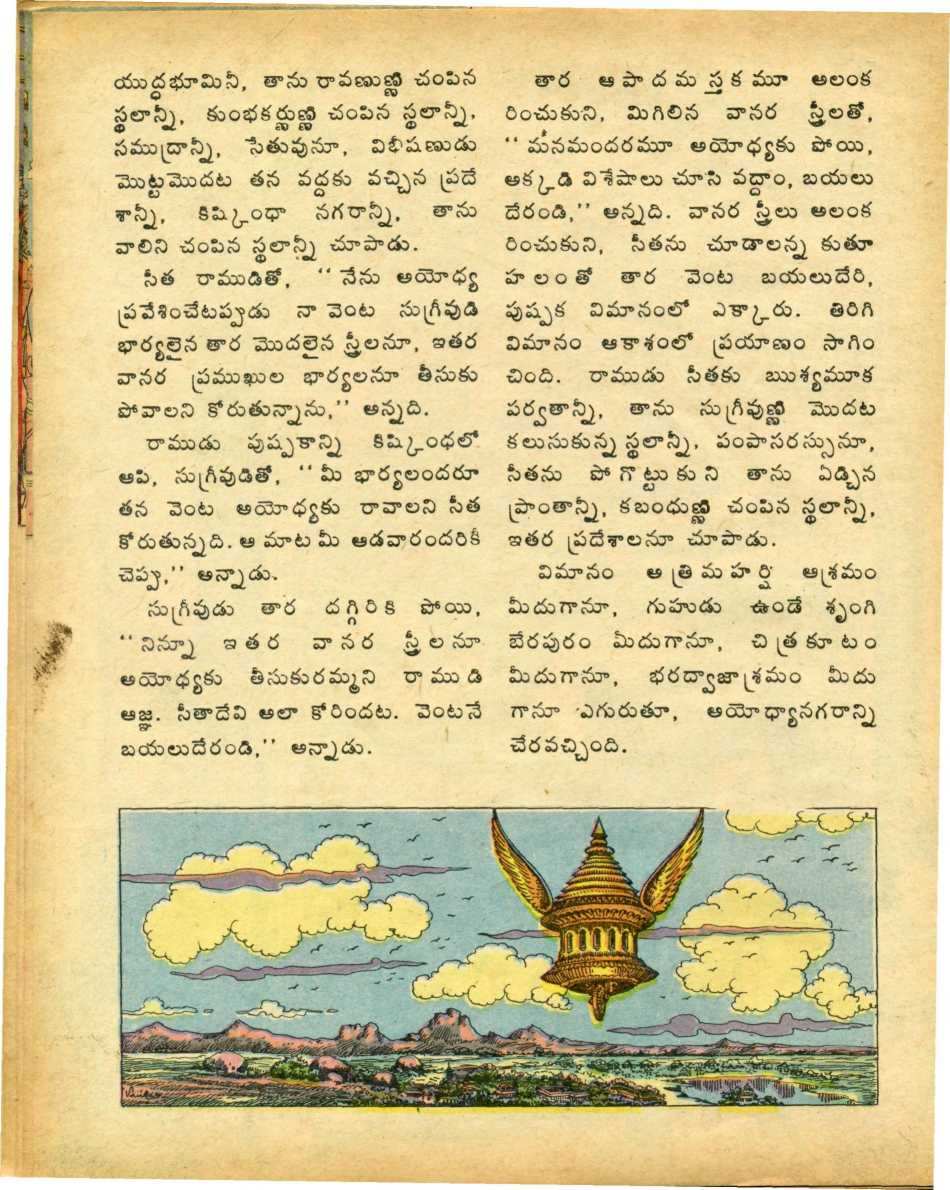 యుద్ధభూమినీ, తాను రావణుణ్ణి చంపిన
స్థలాన్నీ, కుంభకర్ణుణ్ణి చంపిన స్థలాన్నీ,
సముద్రాన్నీ, సేతువునూ, విభీషణుడు
మొట్టమొదట తన వద్దకు వచ్చిన ప్రదే
శాన్నీ, కిష్కింధా నగరాన్నీ, తాను
వాలిని చంపిన స్థలాన్నీ చూపాడు.
సీత రాముడితో, ‘‘నేను అయోధ్య
ప్రవేశించేటప్పుడు నా వెంట సుగ్రీవుడి
భార్యలైన తార మొదలైన స్త్రీలనూ, ఇతర
వానర ప్రముఖుల భార్యలనూ తీసుకు
పోవాలని కోరుతున్నాను,’’ అన్నది.
రాముడు పుష్పకాన్ని కిష్కింధలో
ఆపి, సుగ్రీవుడితో, ‘‘మీ భార్యలందరూ
తన వెంట అయోధ్యకు రావాలని సీత
కోరుతున్నది. ఆ మాట మీ ఆడవారందరికీ
చెప్పు,’’ అన్నాడు.
సుగ్రీవుడు తార దగ్గిరికి పోయి,
‘‘నిన్నూ ఇతర వానర స్త్రీలనూ
అయోధ్యకు తీసుకురమ్మని రాముడి
ఆజ్ఞ. సీతాదేవి అలా కోరిందట. వెంటనే
బయలుదేరండి,’’ అన్నాడు.
తార ఆపాదమస్తకమూ అలంక
రించుకుని, మిగిలిన వానర స్త్రీలతో,
‘‘మనమందరమూ అయోధ్యకు పోయి,
అక్కడి విశేషాలు చూసి వద్దాం, బయలు
దేరండి,’’ అన్నది. వానర స్త్రీలు అలంక
రించుకుని, సీతను చూడాలన్న కుతూ
హలంతో తార వెంట బయలుదేరి,
పుష్పక విమానంలో ఎక్కారు. తిరిగి
విమానం ఆకాశంలో ప్రయాణం సాగిం
చింది. రాముడు సీతకు ఋశ్యమూక
పర్వతాన్నీ, తాను సుగ్రీవుణ్ణి మొదట
కలుసుకున్న స్థలాన్నీ, పంపాసరస్సునూ,
సీతను పోగొట్టుకుని తాను ఏడ్చిన
ప్రాంతాన్నీ, కబంధుణ్ణి చంపిన స్థలాన్నీ,
ఇతర ప్రదేశాలనూ చూపాడు.
విమానం అత్రిమహర్షి ఆశ్రమం
మీదుగానూ, గుహుడు ఉండే శృంగి
బేరపురం మీదుగానూ, చిత్రకూటం
మీదుగానూ, భరద్వాజాశ్రమం మీదు
గానూ ఎగురుతూ, అయోధ్యానగరాన్ని
చేరవచ్చింది.